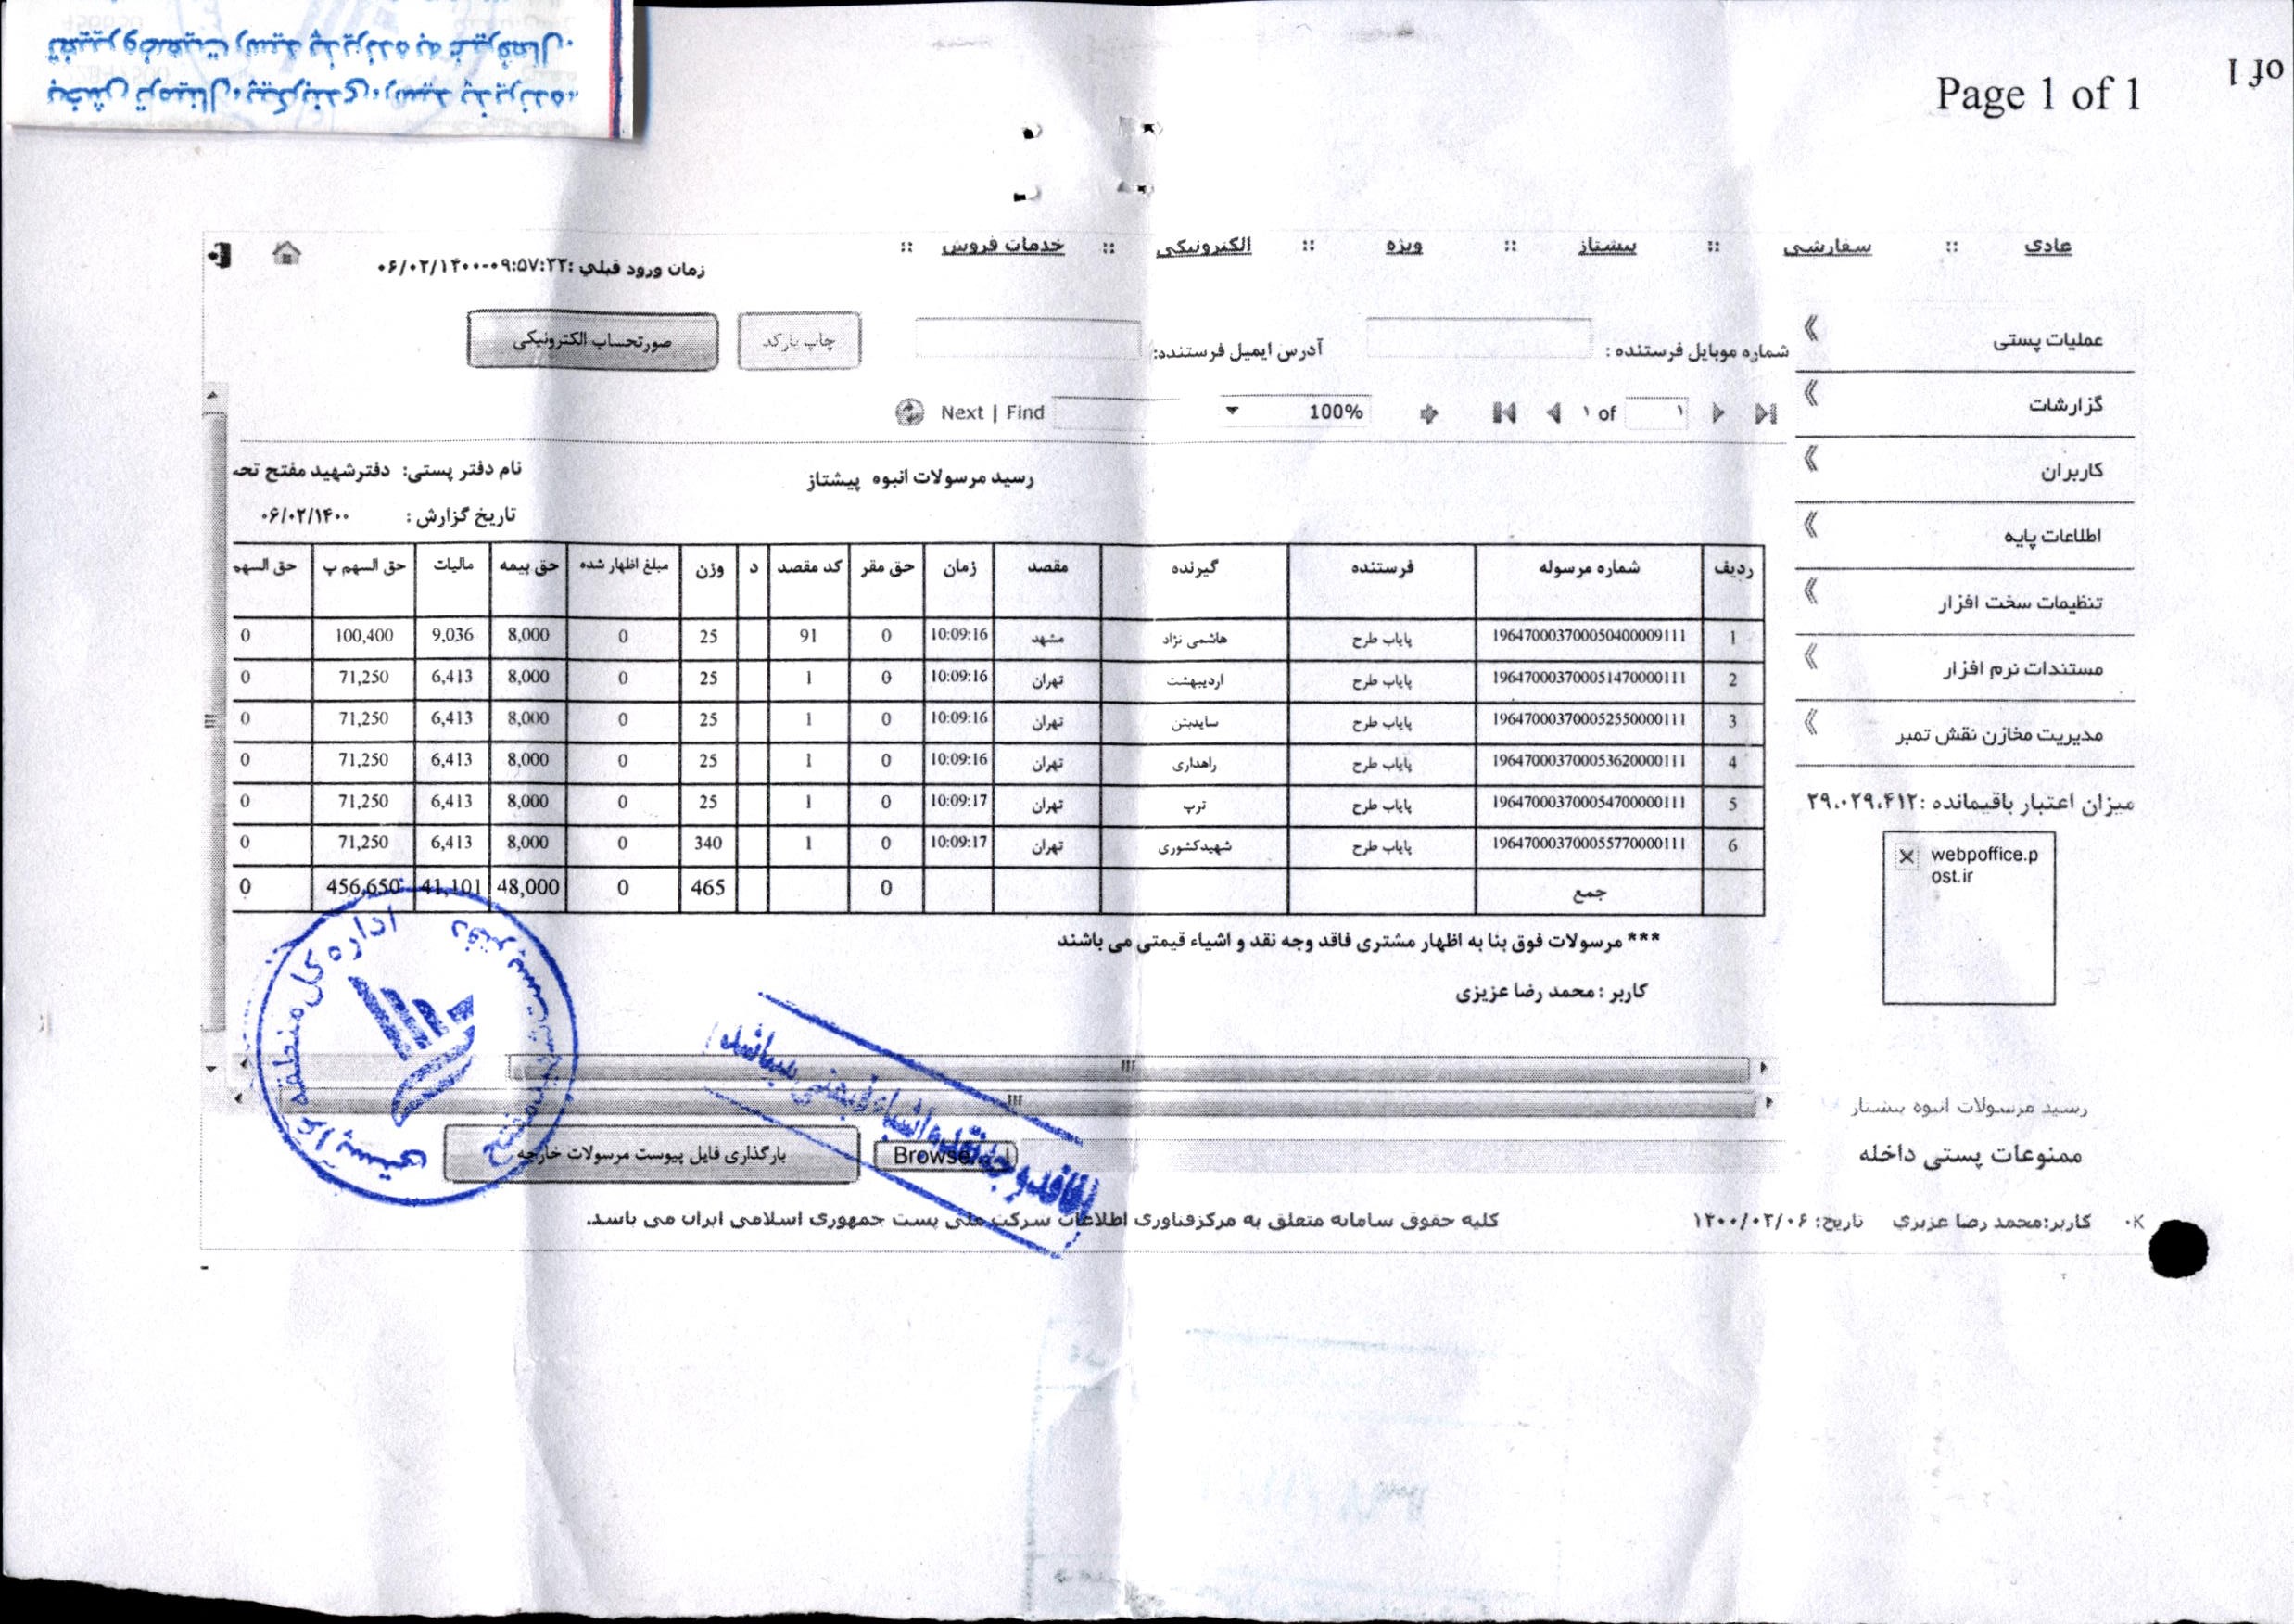 Page 1 of 1
of 1
عادی :: سفارشی :: پیشتاز :: ویژه :: الکترونیکی :: خدمات فروش ::
زمان ورود قبلی :۰۹:۵۷:۲۲-۰۶/۰۲/۱۴۰۰
شماره موبایل فرستنده : آدرس ایمیل فرستنده: چاپ بارکد صورتحساب الکترونیکی
۱ of ۱ 100% Find | Next
عملیات پستی
گزارشات
کاربران
اطلاعات پایه
تنظیمات سخت افزار
مستندات نرم افزار
مدیریت مخازن نقش تمبر
میزان اعتبار باقیمانده :۲۹،۰۲۹،۴۱۲
webpoffice.p
ost.ir
رسید مرسولات انبوه پیشتاز
ممنوعات پستی داخله
رسید مرسولات انبوه پیشتاز
نام دفتر پستی: دفترشهید مفتح تحـ
تاریخ گزارش : ۰۶/۰۲/۱۴۰۰
ردیف شماره مرسوله فرستنده گیرنده مقصد زمان حق مقر کد مقصد د وزن مبلغ اظهار شده حق بیمه مالیات حق السهم پ حق السهم
1 196470003700050400009111 پایاب طرح هاشمی نژاد مشهد 10:09:16 0 91 25 0 8,000 9,036 100,400 0
2 196470003700051470000111 پایاب طرح اردیبهشت تهران 10:09:16 0 1 25 0 8,000 6,413 71,250 0
3 196470003700052550000111 پایاب طرح سایدبتن تهران 10:09:16 0 1 25 0 8,000 6,413 71,250 0
4 196470003700053620000111 پایاب طرح راهداری تهران 10:09:16 0 1 25 0 8,000 6,413 71,250 0
5 196470003700054700000111 پایاب طرح ترپ تهران 10:09:17 0 1 25 0 8,000 6,413 71,250 0
6 196470003700055770000111 پایاب طرح شهیدکشوری تهران 10:09:17 0 1 340 0 8,000 6,413 71,250 0
جمع 0 465 0 48,000 41,101 456,650 0
*** مرسولات فوق بنا به اظهار مشتری فاقد وجه نقد و اشیاء قیمتی می باشند
کاربر : محمد رضا عزیزی
اداره کل منطقه پستی
دفتر پست شهید مفتح
فاقد وجه نقد و اشیاء قیمتی میباشد
Browse... بارگذاری فایل پیوست مرسولات خارجه
کاربر:محمد رضا عزیزی تاریخ: ۱۴۰۰/۰۲/۰۶ کلیه حقوق سامانه متعلق به مرکزفناوری اطلاعات شرکت ملی پست جمهوری اسلامی ایران می باشد.